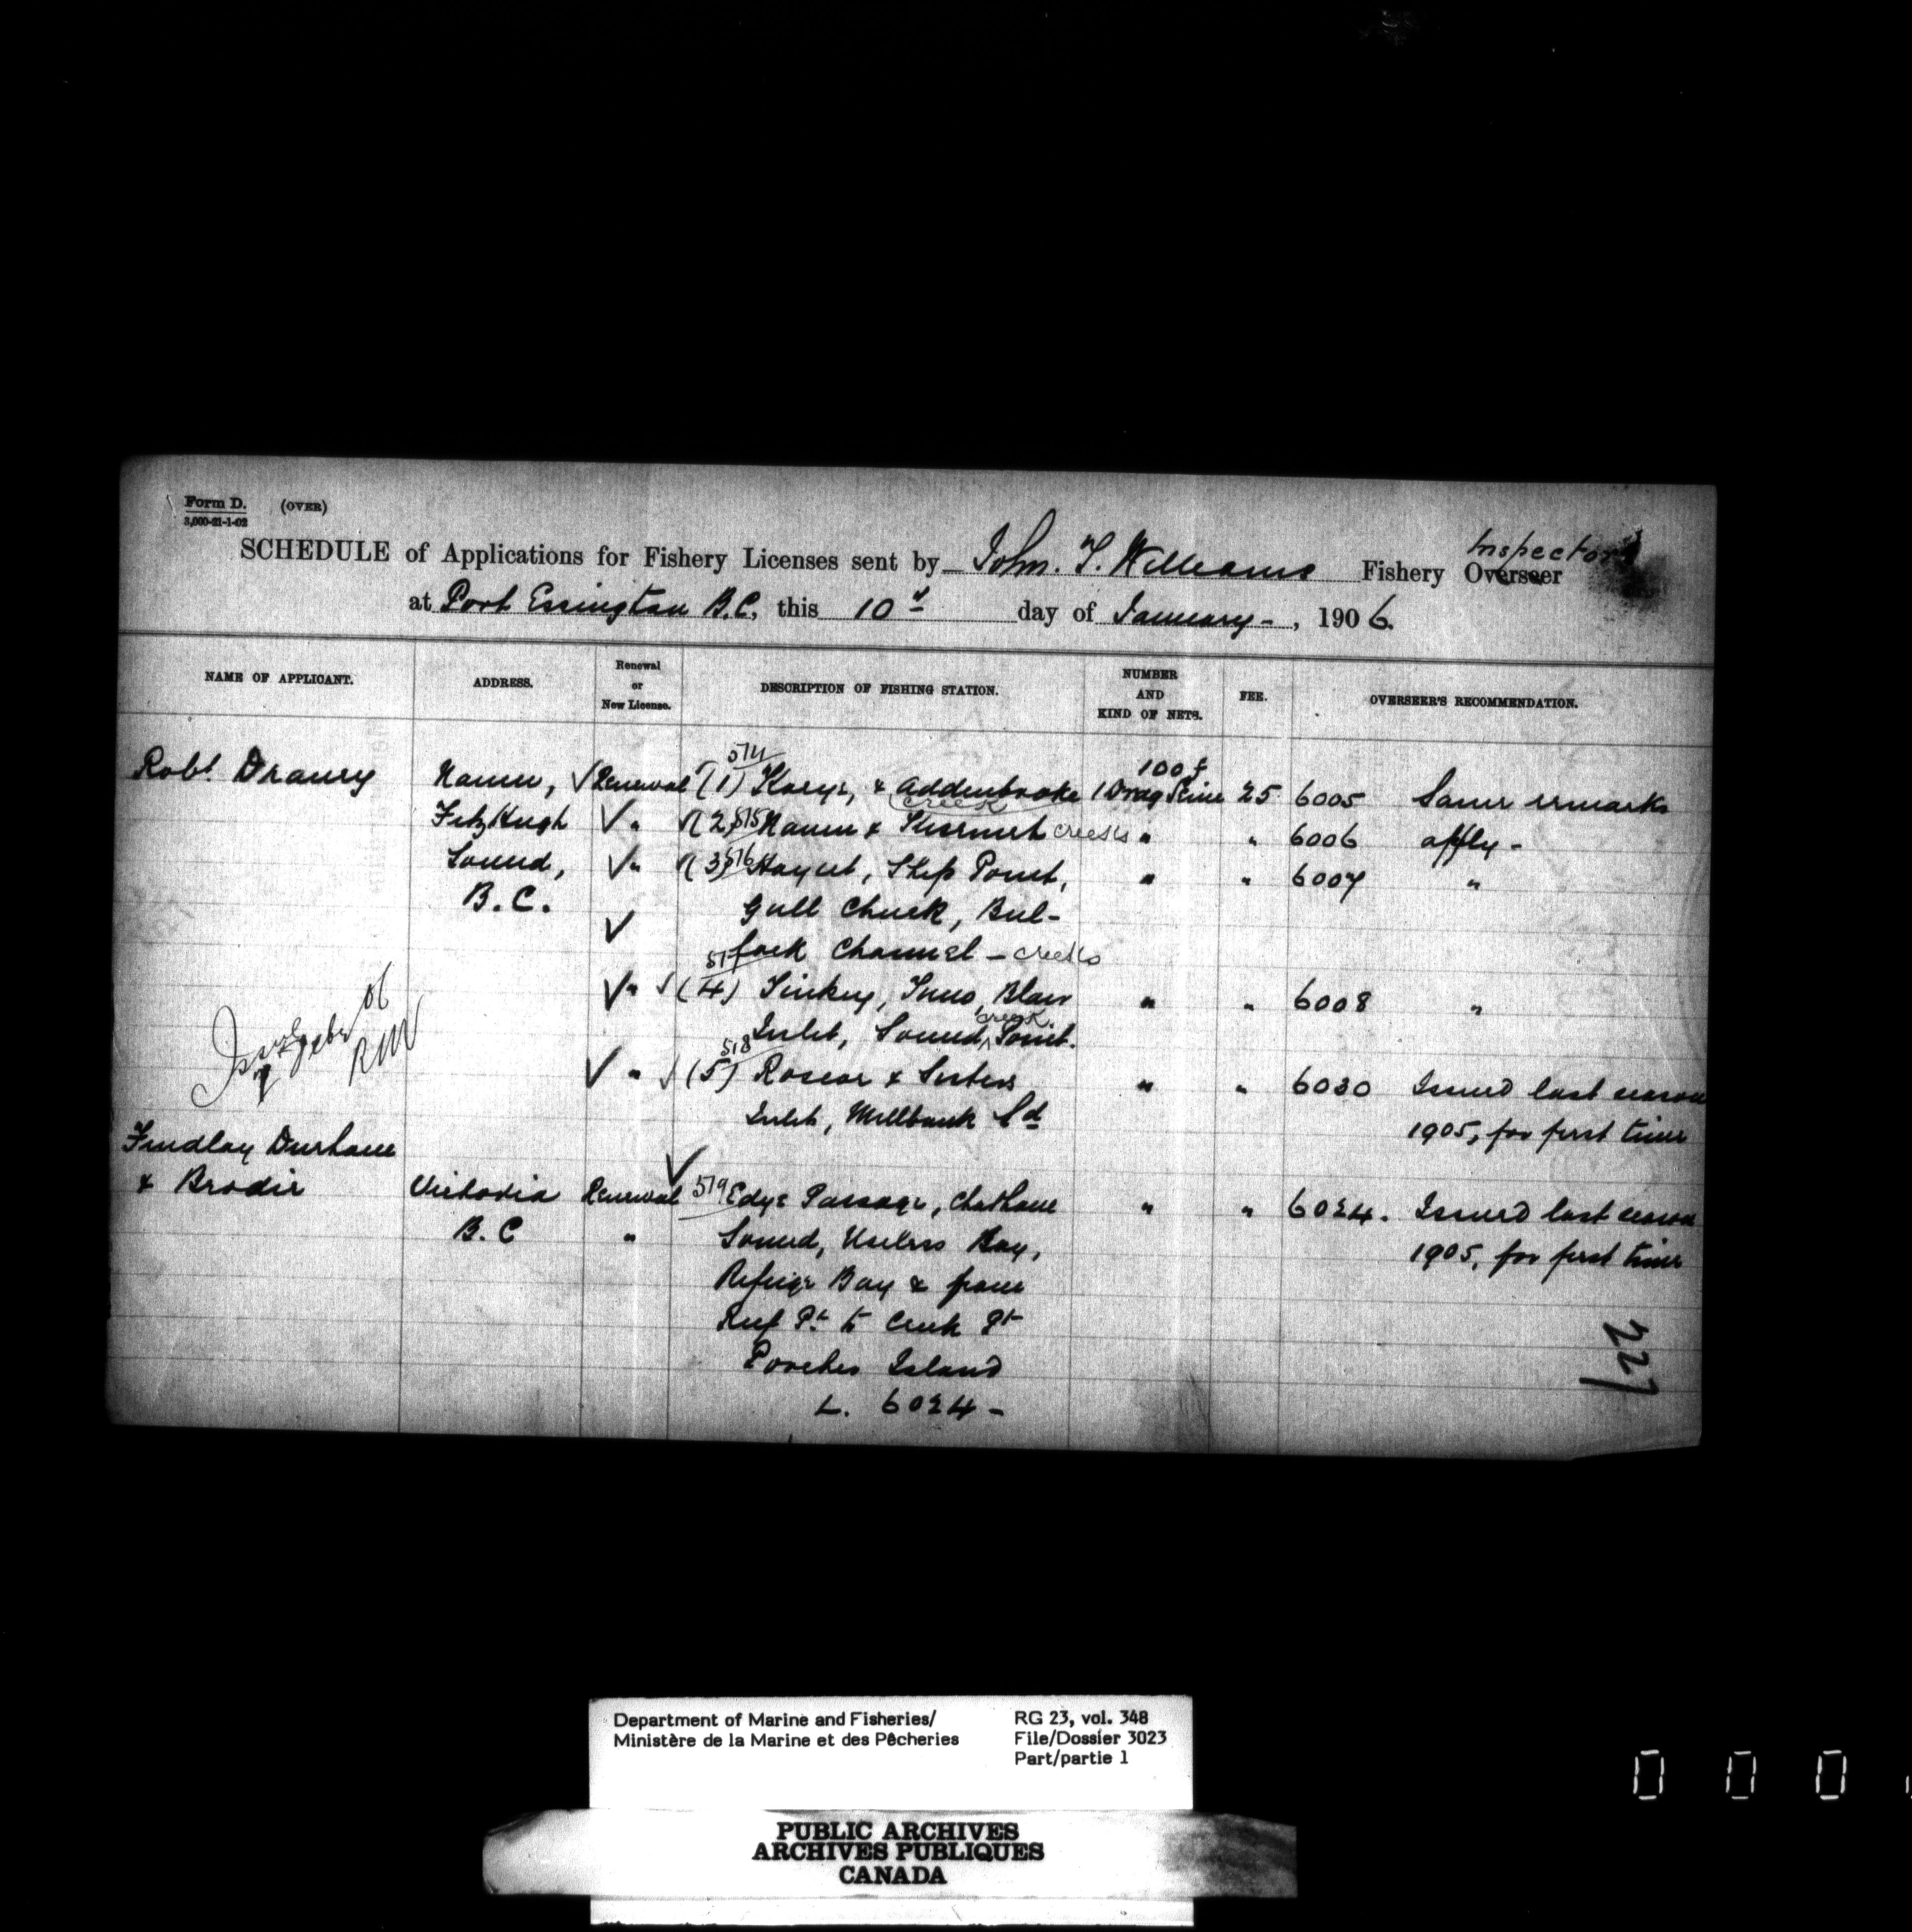 Form D. (OVER)
3,000-21-1-02
SCHEDULE of Applications for Fishery Licenses sent by John. T. Williams Fishery Overseer Inspector
at Port Essington B.C, this 10th day of January - , 1906.
NAME OF APPLICANT. ADDRESS. Renewal or New License. DESCRIPTION OF FISHING STATION. NUMBER AND KIND OF NETS. FEE. OVERSEER'S RECOMMENDATION.
514 100 f
Robt Draney Namu, √ Renewal √ (1) Koeye, & Addenbrooke 1 Drag Seine 25 6005 Same remarks
creek
Fitz Hugh √ " √ (2) 515 Namu & creeks " " 6006 apply -
Sound, √ " √ (3) 516 Ship Point, " " 6007 "
B.C.
Gull Chuck, Bul-
√
lock Channel - creeks
517
√ " √ (4) " " 6008 "
creek
Inlet, Sound, Point.
518
√ " √ (5) Roscoe & Sisters " " 6030 Issued last season
Inlet, Millbank Sd 1905, for first time
06
RNV
Findlay Durham
√
& Brodie Victoria Renewal 519 Edye Passage, Chatham " " 6024. Issued last season
B.C " Sound, Useless Bay, 1905, for first time
Refuge Bay & from
Reef Pt to Creek Pt
Porcher Island
L. 6024 -
227
Department of Marine and Fisheries/
Ministère de la Marine et des Pêcheries
RG 23, vol. 348
File/Dossier 3023
Part/partie 1
PUBLIC ARCHIVES
ARCHIVES PUBLIQUES
CANADA
0 0 0